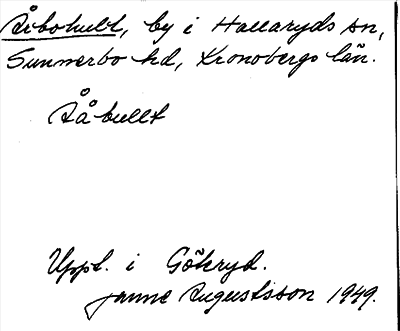 Råbohult, by i Hallaryds sn,
Sunnerbo hd, Kronobergs län.
Råbullt
Uppt. i Gökryd.
Janne Augustsson 1949.